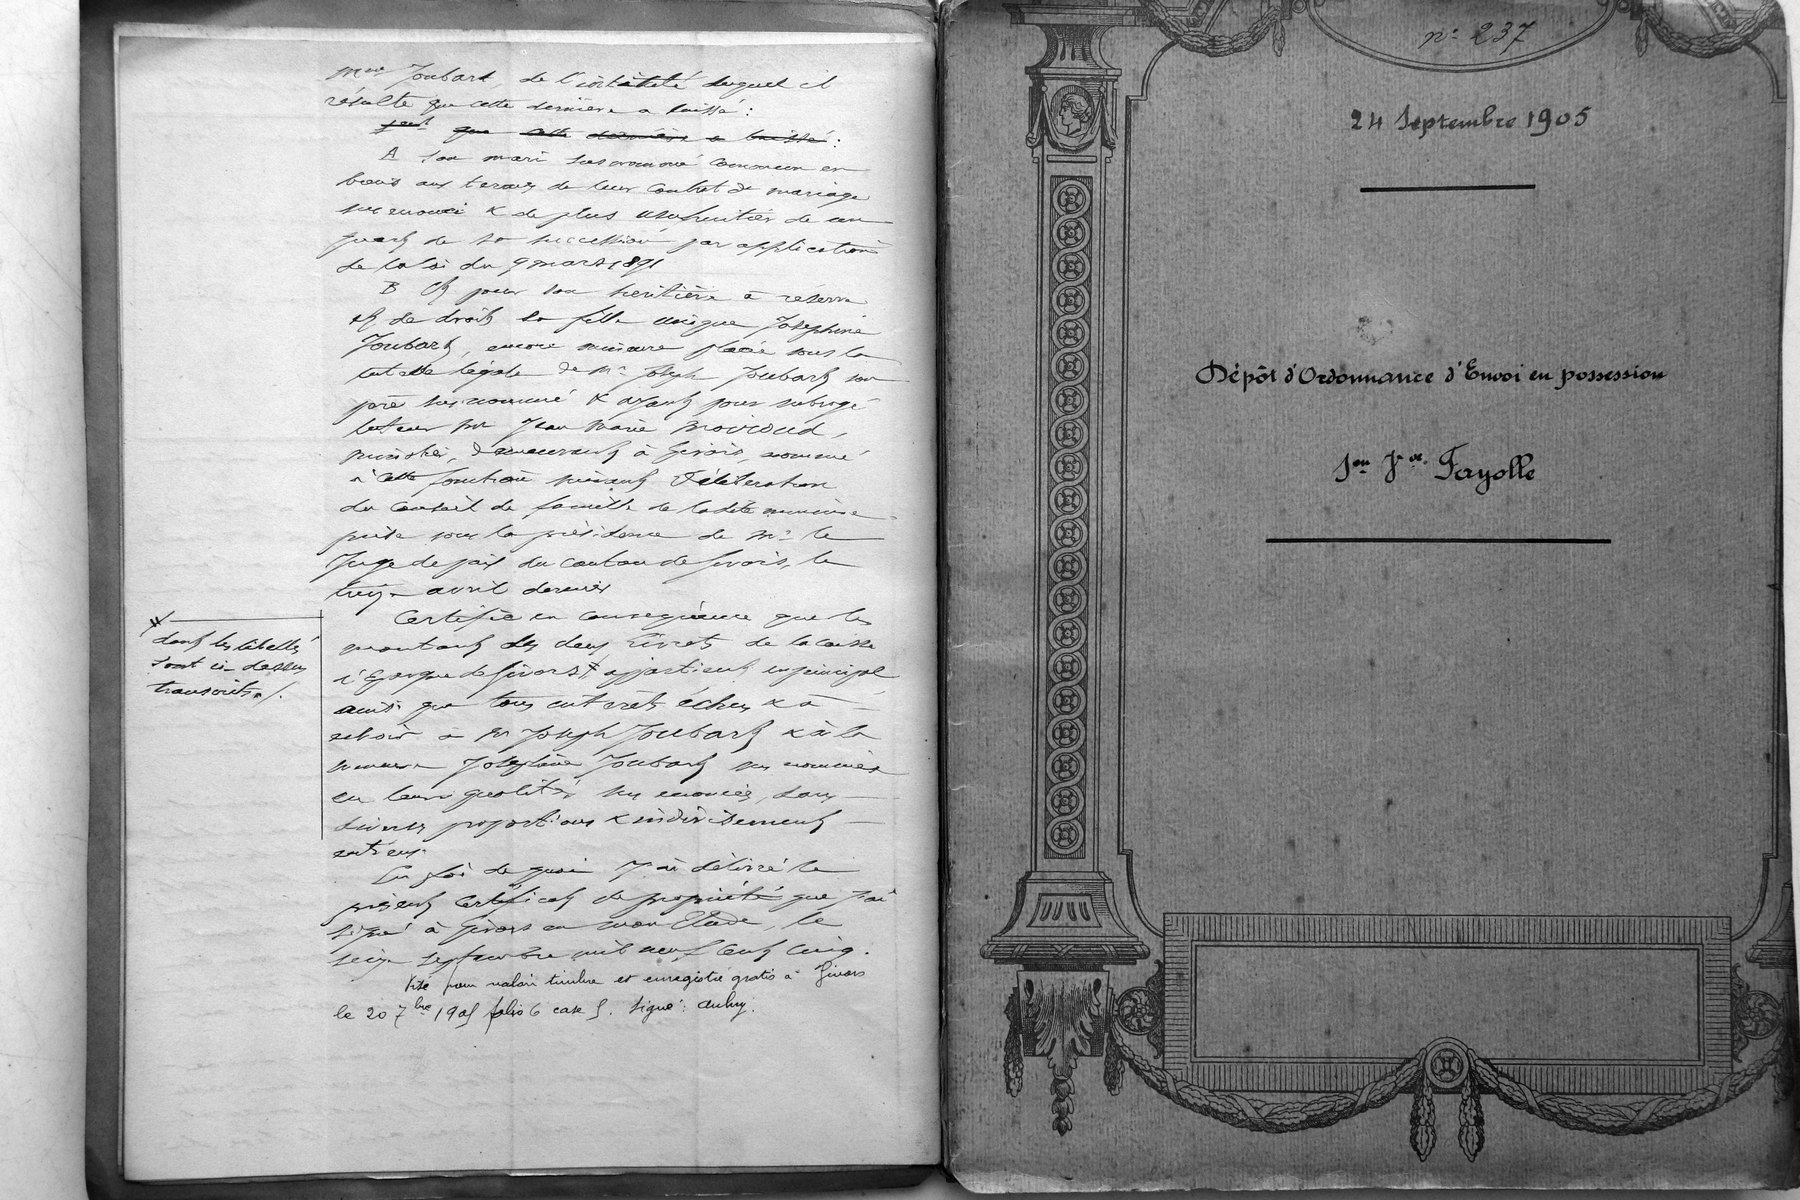 Mme Joubart, de l'intitulé duquel il
résulte que cette dernière a laissé :
que cette dernière a laissé :
A Son mari susnommé commun en
biens aux termes de leur contrat de mariage
sus énoncé & de plus usufruitier de un
quart de sa succession par application
de la loi du 9 mars 1891
B Et pour son héritière à réserve
et de droit sa fille unique Joséphine
Joubart, encore mineure placée sous la
tutelle légale de Mr Joseph Joubart son
père susnommé & ayant pour subrogé
tuteur Mr Jean Marie
demeurant à Givors, nommé
à cette fonction suivant délibération
du conseil de famille de ladite mineure
prise sous la présidence de Mr le
Juge de paix du canton de Givors, le
avril dernier
Certifie en conséquence que les
montants des deux livrets de la caisse
d'Epargne de Givors appartient en principal
ainsi que tous intérêts échus & à
échoir à Mr Joseph Joubart & à la
mineure Joséphine Joubart sus nommés
en leurs qualités sus énoncées, dans
diverses proportions & indivisément
entre eux.
En foi de quoi J'ai délivré le
présent certificat de propriété que j'ai
signé à Givors en mon Etude, le
seize septembre mil neuf cent cinq.
Visé pour valoir timbre et enregistré gratis à Givors
le 20 7bre 1905 folio 6 case 5. Signé : Aubry.
dont les libellés
sont ci-dessus
transcrits
n° 237
24 Septembre 1905
Dépôt d'Ordonnance d'Envoi en possession
Son Vve Fayolle